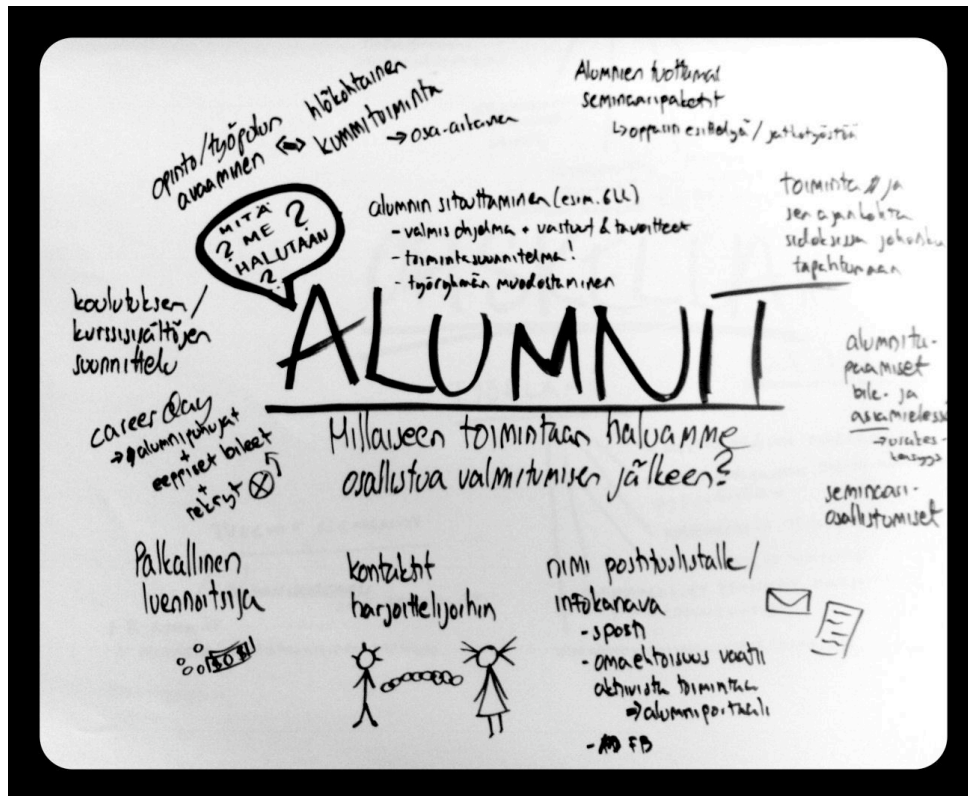 opinto/työpolun
avaaminen <=>
hlökohtainen
kummitoiminta
→ osa-aikainen
Alumnien tuottamat
seminaaripaketit
↳ oppariin esittelyä / jatkotyöstöä
MITÄ
? ME ?
HALUTAAN
?
alumnin sitouttaminen (esim.
- valmis ohjelma + vastuut & tavoitteet
- toimintasuunnitelma!
- työryhmän muodostaminen
toiminta ja
sen ajankohta
sidoksissa johonkin
tapahtumaan
koulutuksen/
kurssisisältöjen
suunnittelu
ALUMNIT
Millaiseen toimintaan haluamme
osallistua valmistumisen jälkeen?
career day
→ alumnipuhujat
+
eeppiset bileet
+
rekryt
alumnita-
paamiset
bile- ja
asiamielessä
seminaari-
osallistumiset
Palkallinen
luennoitsija
kontaktit
harjoittelijoihin
nimi postituslistalle/
infokanava
- sposti
- omaehtoisuus vaatii
aktiivista toimintaa
⇒ alumniportaali
- FB